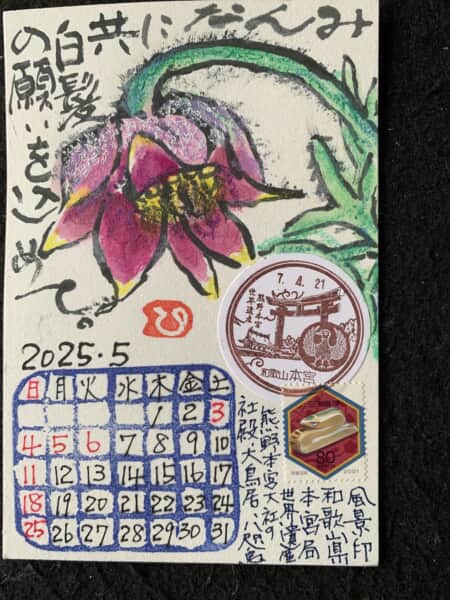 みんなに共
白髪
の願いを込めて。
ひ
7.4.21
世界遺産
熊野本宮
和歌山本宮
80
2001
2025.5
日 月 火 水 木 金 土
1 2 3
4 5 6 7 8 9 10
11 12 13 14 15 16 17
18 19 20 21 22 23 24
25 26 27 28 29 30 31
風景印
和歌山県
本宮局
世界遺産
熊野本宮大社の
社殿・大鳥居・八咫烏